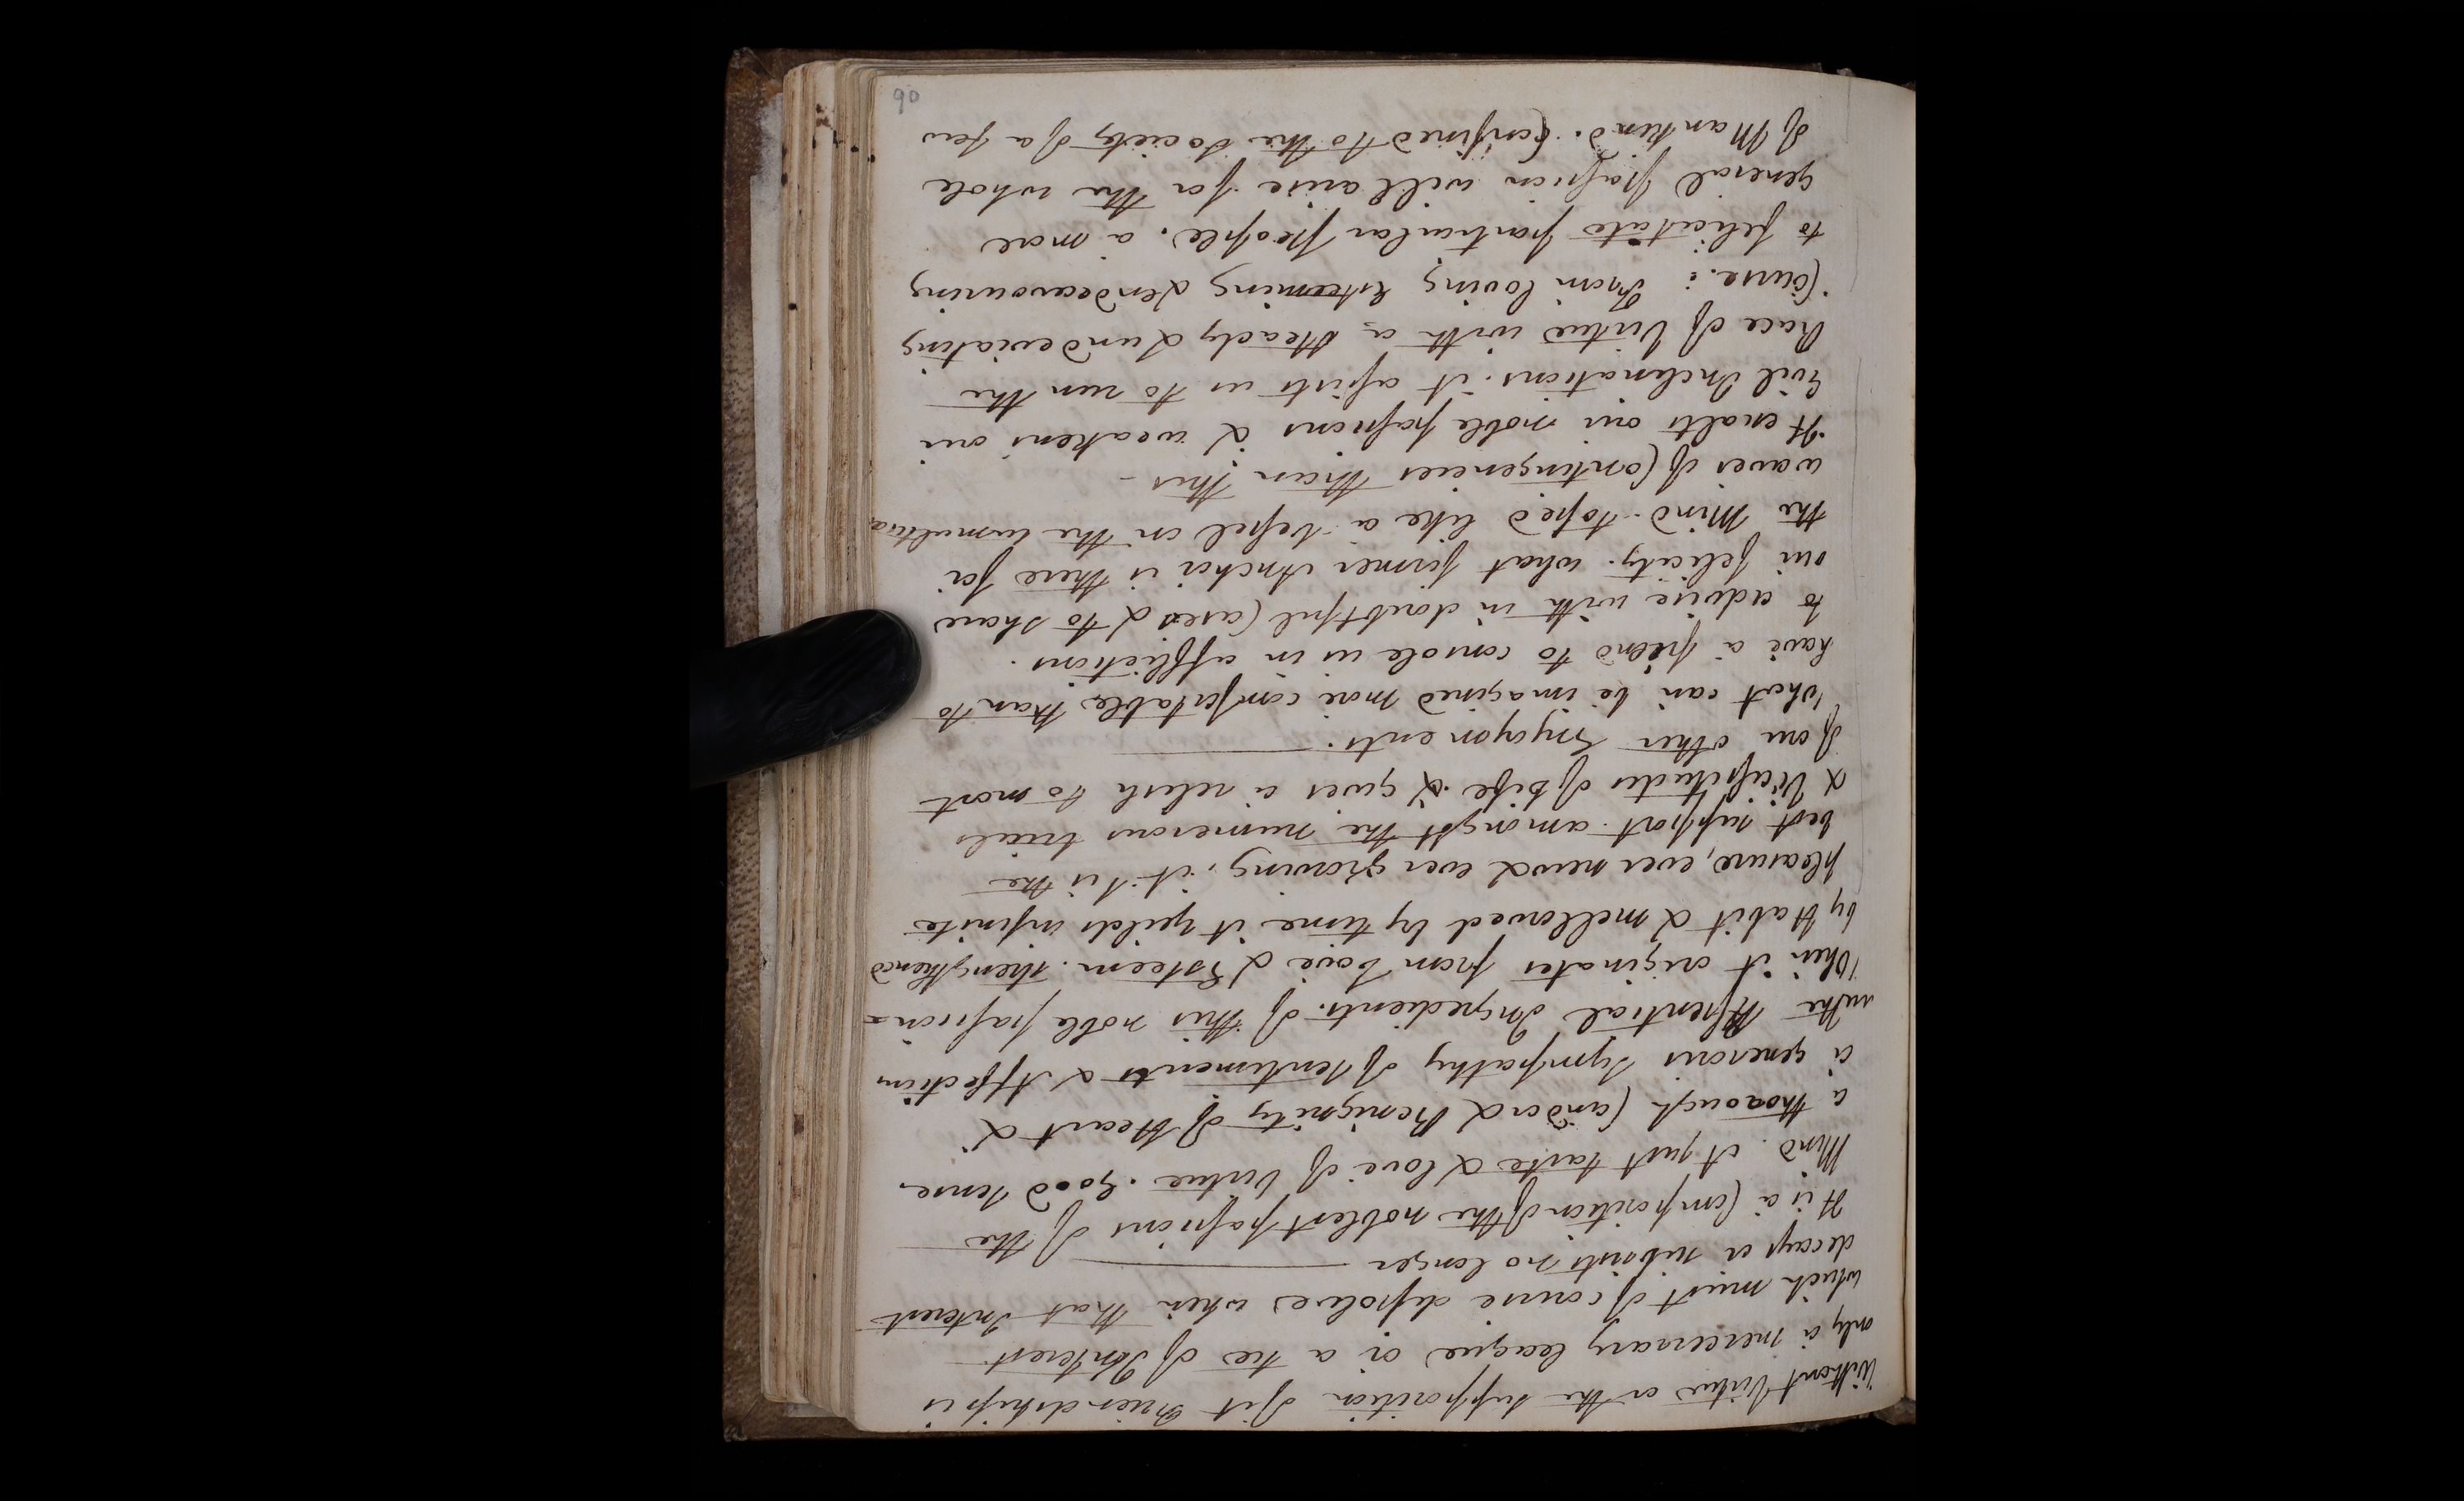 Without Virtue or the supposition of it Friendship is
only a mercenary league or a tie of Interest
which must of course dissolve when that Interest
decays or subsists no longer
It is a Composition of the noblest passions of the
Mind. A just taste & love of Virtue. Good sense
a thorough Candor & Benignity of Heart &
a generous Sympathy of sentiments & Affections
are the Essential Ingredients of this noble passion =
When it originates from Love & Esteem. strengthened
by Habit & mellowed by time it yeilds infinite
pleasure, ever new & ever growing, it is the
best support amongst the numerous trials
& Vicissitudes of Life & gives a relish to most
of our other Enjoyments.
What can be imagined more comfortable than to
have a friend to console us in afflictions.
to advise with in doubtful Cases & to share
our felicity. what firmer Anchor is there for
the Mind. tossed like a Vessel on the tumultuous
waves of Contingencies than this -
It exalts our noble passions & weakens our
Evil Inclinations. it assists us to run the
Race of Virtue with a steady & undeviating
Course: From loving Esteeming & endeavouring
to felicitate particular people. a more
general passion will arise for the whole
of Mankind. Confined to the Society of a few
90